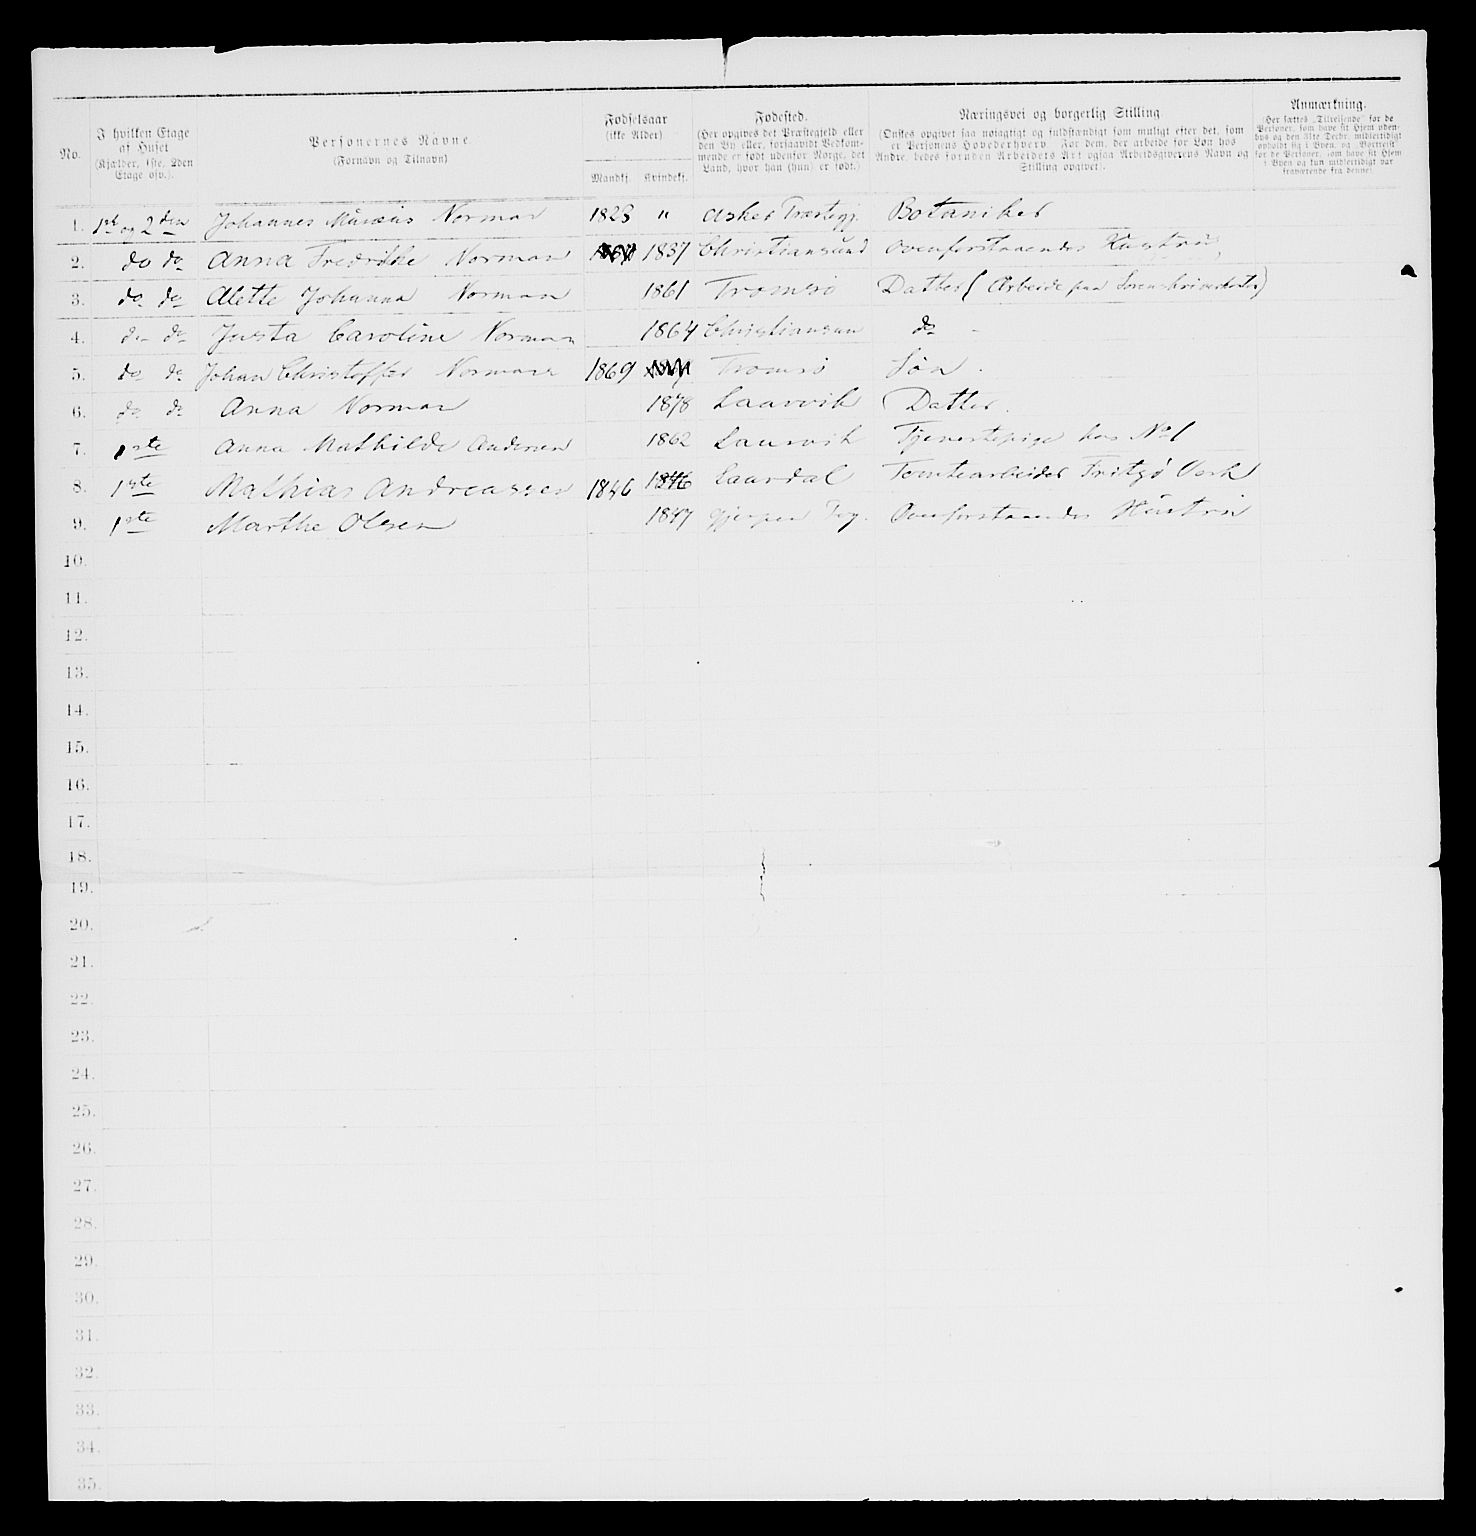 No.
I hvilken Etage af Huset (Kjælder, 1ste, 2den Etage osv.).
Personernes Navne (Fornavn og Tilnavn)
Fødselsaar (ikke Alder)
Mandkj. Kvindekj.
Fødested. (Her opgives det Præstegjeld eller den By eller, forsaavidt Vedkommende er født udenfor Norge, det Land, hvor han (hun) er født.)
Næringsvei og borgerlig Stilling. (Ønskes opgivet saa nøiagtigt og fuldstændigt som muligt efter det, som er Personens Hovederhverv. For dem, der arbeide for Løn hos Andre, bedes foruden Arbeidets Art ogsaa Arbeidsgiverens Navn og Stilling opgivet).
Anmærkning. (Her sættes „Tilreisende" for de Personer, som have sit Hjem udenbys og den 31te Decbr. midlertidigt opholdt sig i Byen, og „Bortreist" for de Personer, som have sit Hjem i Byen og kun midlertidigt var fraværende fra denne)
1. 1ste og 2den Johannes Musæus Norman 1823 " Asker Præstegj. Botaniker
2. do do Anna Fredrikke Norman 1837 Christiansund Ovenforstaaendes Hustru
3. do do Alette Johanna Norman 1861 Tromsø Datter (Arbeide paa Sorenskriverkontor)
4. do do Justa Caroline Norman 1864 Christiansun do -
5. do do Johan Christoffer Norman 1869 Tromsø Søn.
6. do do Anna Norman 1878 Laurvik Datter.
7. 1ste Anna Mathilde Andersen 1862 Laurvik Tjenestepige hos No 1
8. 1ste Mathias Andreassen 1846 1846 Laurdal Tomtearbeider Fritzø Verk
9. 1ste Marthe Olsen 1847 Gjerpen Ovenforstaaendes Hustru
10.
11.
12.
13.
14.
15.
16.
17.
18.
19.
20.
21.
22.
23.
24.
25.
26.
27.
28.
29.
30.
31.
32.
33.
34.
35.